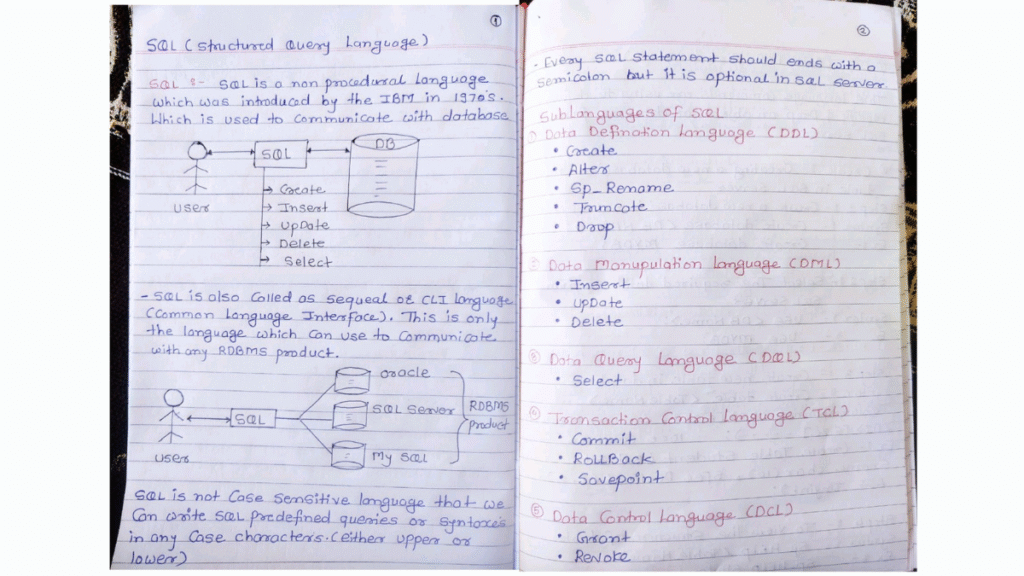 ①
SQL (Structured Query Language)
SQL :- SQL is a non procedural language
which was introduced by the IBM in 1970's.
Which is used to communicate with database
SQL
DB
user
→ Create
→ Insert
→ UpDate
→ Delete
→ Select
- SQL is also called as sequeal or CLI language
(Common Language Interface). This is only
the language which can use to communicate
with any RDBMS product.
oracle
SQL Server
My SQL
RDBMS
product
SQL
user
SQL is not case sensitive language that we
can write SQL predefined queries or syntaxes
in any case characters. (either upper or
lower)
②
. Every SQL statement should ends with a
semicolon but it is optional in SQL server
Sublanguages of SQL
① Data Defination Language (DDL)
• Create
• Alter
• Sp_Rename
• Truncate
• Drop
② Data Manupulation language (DML)
• Insert
• UpDate
• Delete
③ Data Query Language (DQL)
• Select
④ Transaction Control language (TCL)
• Commit
• RollBack
• Savepoint
⑤ Data Control Language (DCL)
• Grant
• Revoke